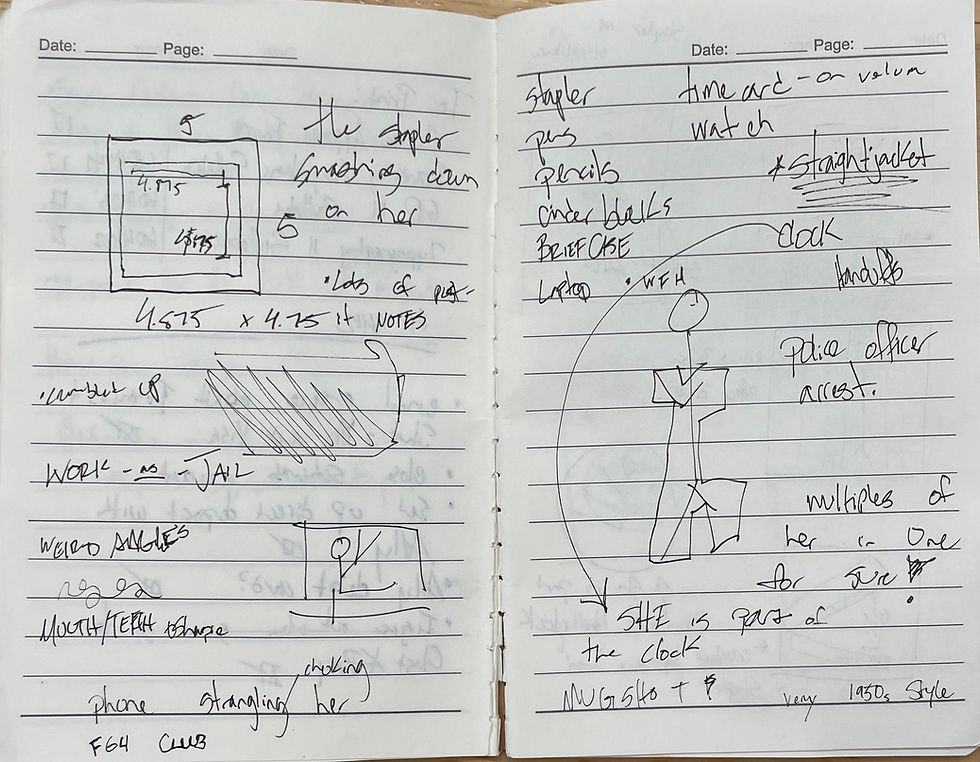 Date: ______ Page: ______
5
the stapler
smashing down
on her
4.875
5
4.875
• Lots of post-
it NOTES
4.875 x 4.75
• crumbled UP
WORK - as - JAIL
WEIRD ANGLES
MOUTH/TEETH
choking
phone strangling her
F64 CLUB
Date: ______ Page: ______
stapler
pens
pencils
cinder blocks
BRIEFCASE
Laptop • WFH
time card - on vellum
watch
*straightjacket
clock
Handcuffs
Police officer
arrest.
multiples of
her in one
for sure
SHE is part of
the clock
MUGSHOT?
very 1950s style